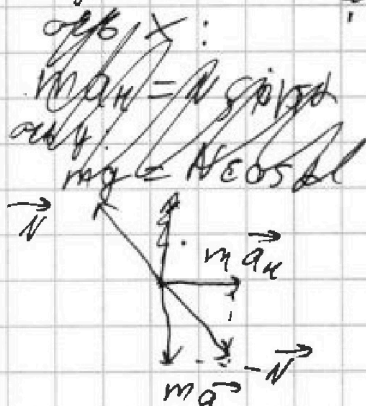 ось x:
maₙ = N sin α
ось y:
mg = N cos α
N⃗
maₙ⃗
-N⃗
ma⃗